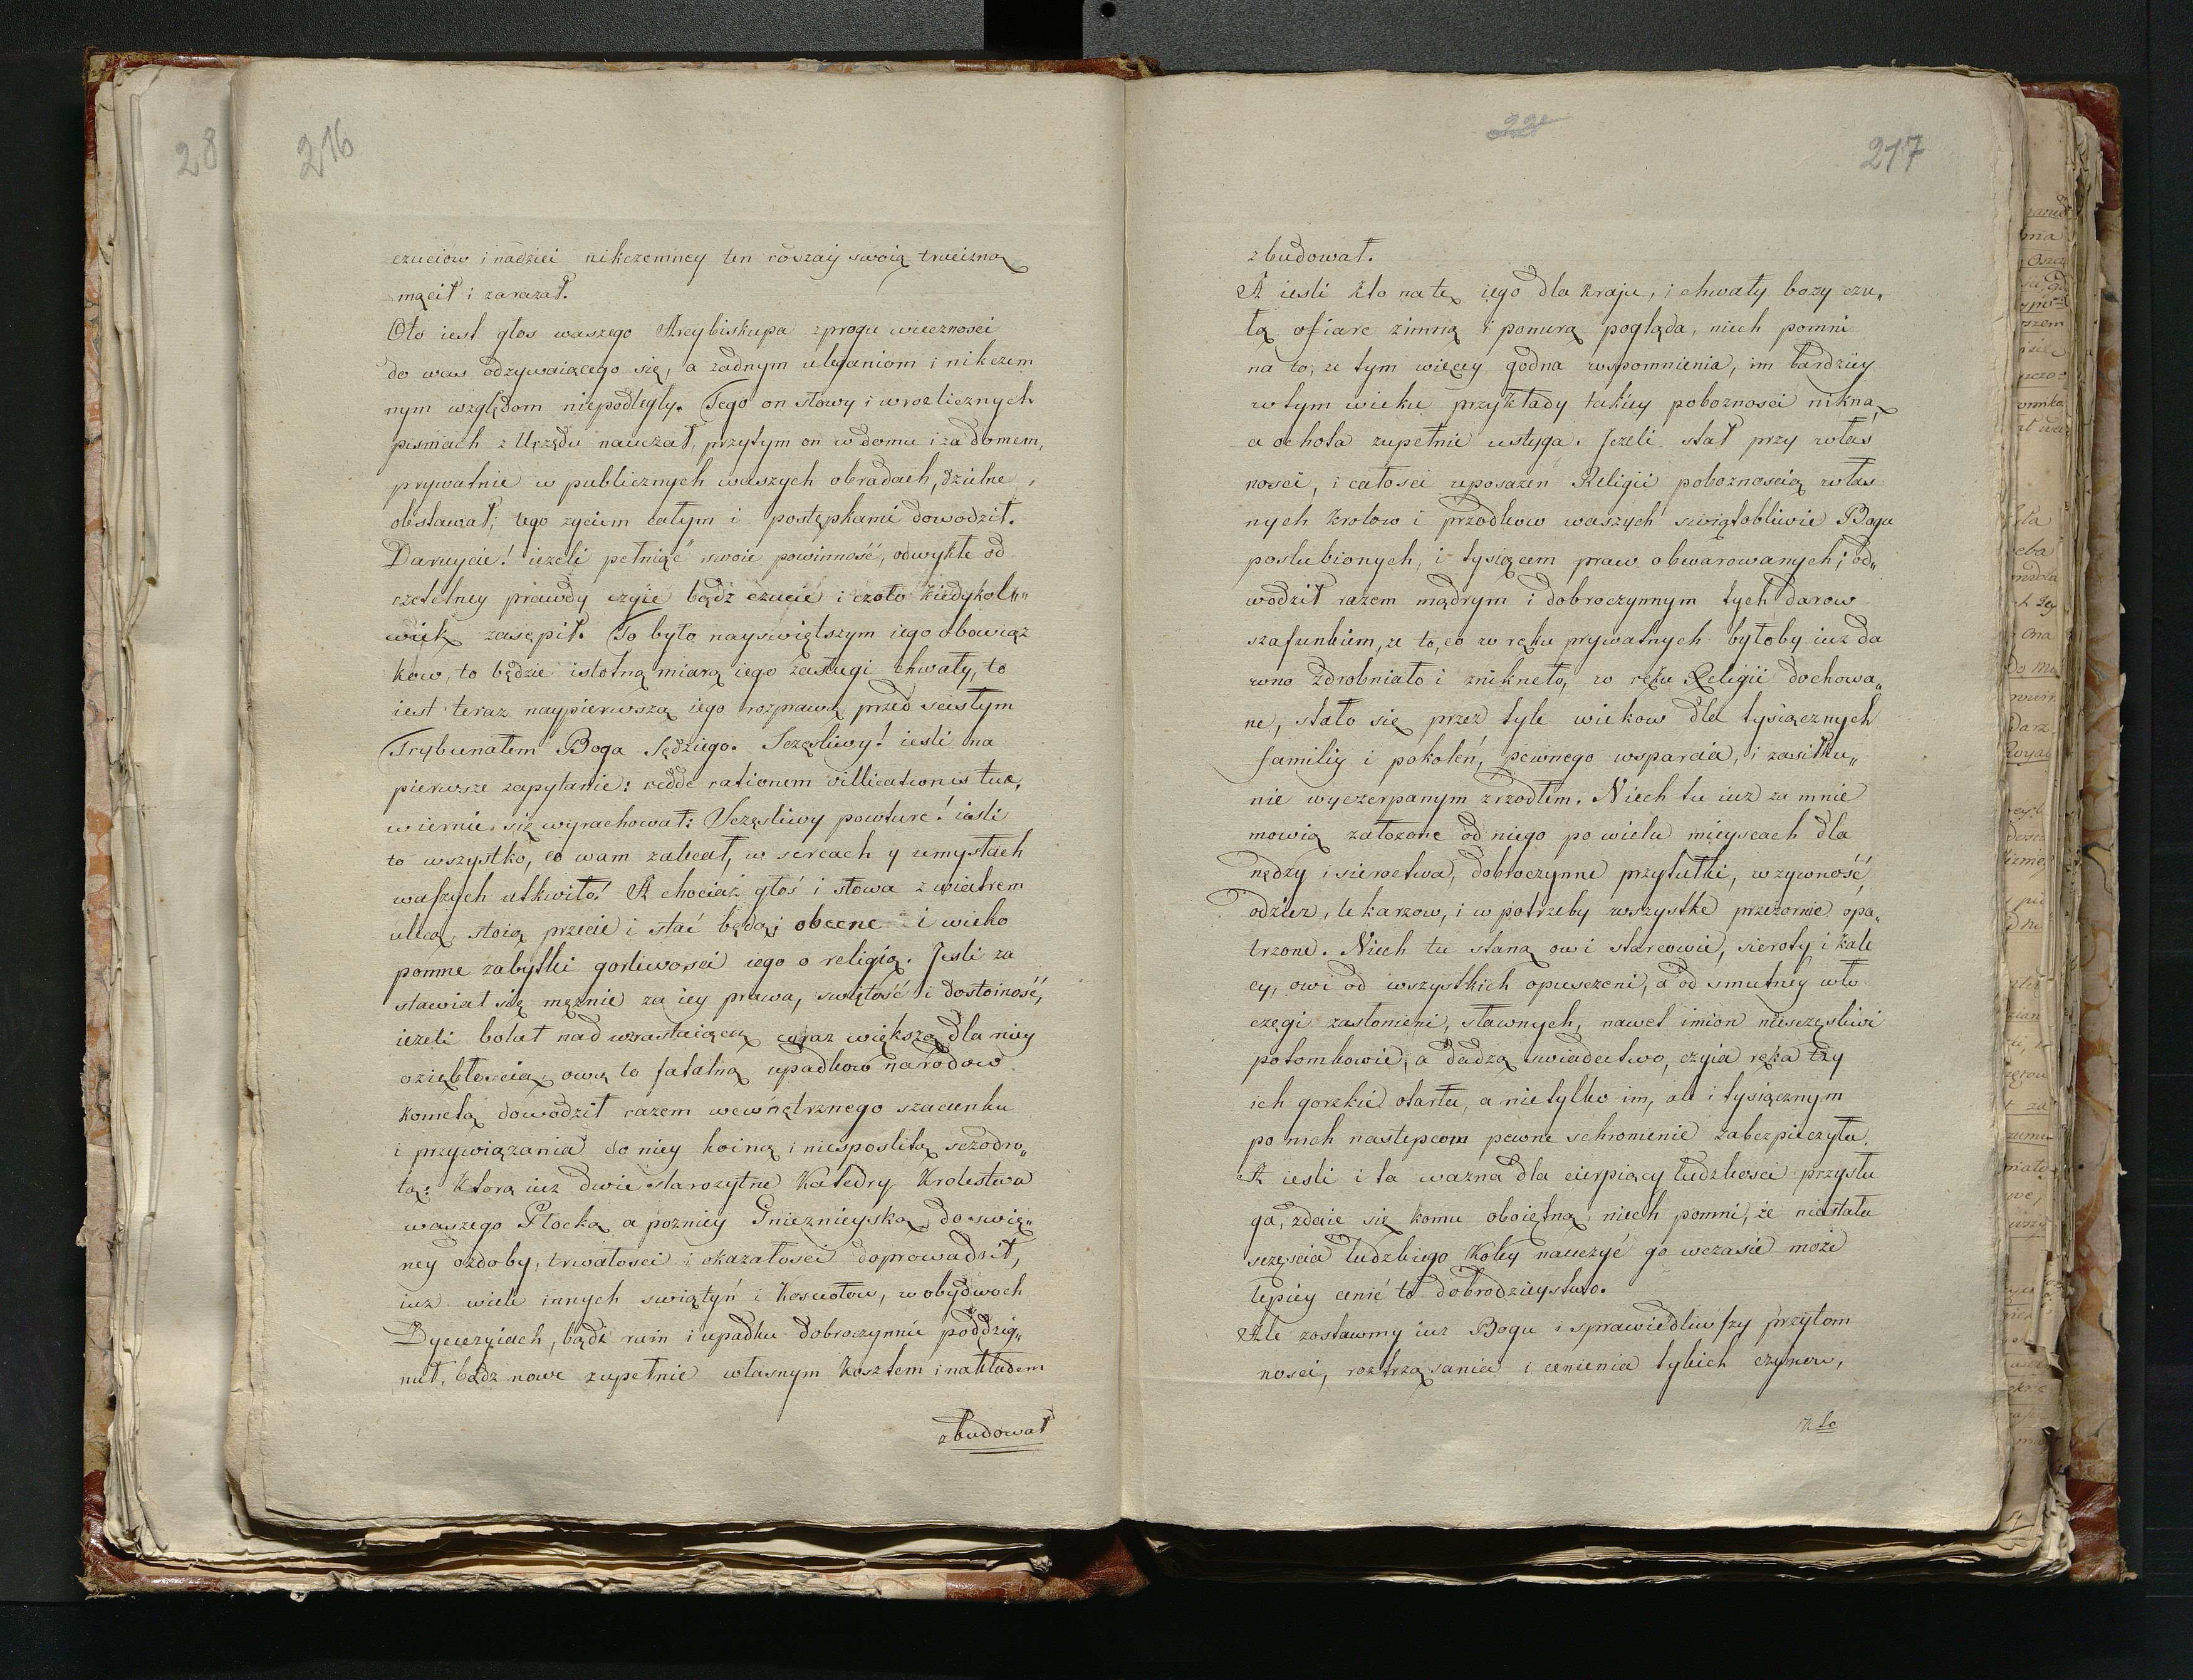 28
216
czuciow i nadziei nikczemney ten rodzay swoią trucizną
mącił i zarazał.
Oto iest głos waszego Arcybiskupa z progu wieczności
do was odzywaiącego się, a żadnym uleganiom i nikczem
nym względom niepodległy. Tego on słowy i w rozlicznych
pismach z Urzędu nauczał, przytym on w domu i za domem,
prywatnie w publicznych waszych obradach, dzielne
obstawał; tego zyciem całym i postępkami dowodził.
Daruycie! ieżeli pełniąc swoie powinność, odwykłe od
rzetelney prawdy czyie bądź czucie i czoło kiedykol„
wiek zasępił. To było nayświętszym iego obowiąz
kow, to będzie istotną miarą iego zasługi chwały, to
iest teraz naypierwszą iego rozprawą przed ścisłym
Trybunałem Boga Sędziego. Szczęsliwy! iesli na
pierwsze zapytanie: redde rationem villicationis tuæ,
wiernie się wyrachował: Szczęsliwy powture! iesli
to wszystko, co wam zalecał, w sercach y umysłach
waszych utkwiło! A chociaż głos i słowa z wiatrem
ulecą, stoią przecie i stać będą obecne i wieko
pomne zabytki gorliwosci iego o religią. Jesli za
stawiał się mężnie za iey prawa, swiętość i dostoiność,
ieżeli bolał nad wzrastaiącą coraz większą dla niey
oziębłoscią, ową to fatalną upadkow narodow
kometą dowodził razem wewnętrznego szacunku
i przywiązania do niey hoiną i niespospolitą sczodro„
tą: ktorą iuz dwie starożytne Katedry Krolestwa
waszego Płocką a pozniey Gnieznieyską do swię„
ney ozdoby, trwałosci i okazałosci doprowadził,
iuz wiele innych swiątyń i Kosciołow, w obydwoch
Dyecezyiach, bądź ruin i upadku dobroczynnie poddzig„
nuł, bądz nowe zupełnie własnym kosztem i nakładem
zbudował
22
217
zbudował.
A iesli kto na tę iego dla kraju, i chwały bozy czu„
łą ofiarę zimną i ponurą pogląda, niech pomni
na to, ze tym więcey godna wspomnienia, im bardziey
w tym wieku przykłady takiey pobozności nikną,
a ochota zupełnie ustyga. Jezeli stał przy włas
nosci, i całosci uposazen Religii poboznoscią włas
nych krolow i przodkow waszych swiątobliwie Bogu
poslubionych, i tysiącem praw obwarowanych; od„
wodził razem mądrym i dobroczynnym tych darow
szafunkiem, ze to, co w ręku prywatnych byłoby iuz da
wno zdrobniało i znikneło, w ręku Religii dochowa„
ne, stało się przez tyle wiekow dla tysiącznych
familiy i pokoleń, pewnego wsparcia, i zasiłku„
nie wyczerpanym zrzodłem. Niech tu iuz za mnie
mowią założone od niego po wielu mieyscach dla
nędzy i sieroctwa, dobroczynne przytułki, w zywność,
odziez, lekarzow, i w potrzeby wszystke przezornie opa„
trzone. Niech tu staną owi starcowie, sieroty i kale
cy, owi od wszystkich opuszczeni, a od smutney włó
częgi zasłonieni, sławnych, nawet imion niesczęsliwi
potomkowie, a dadzą swiadectwo, czyia ręka łzy
ich gorzkie otarła, a nie tylko im, ale i tysiącznym
po nich nastepcom pewne schronienie zabezpieczyła.
A iesli i ta wazna dla cierpiący ludzkosci przysłu
ga, zdaie się komu oboiętną, niech pomni, że niestała
szczęscia ludzkiego koley nauczyć go wczasie może
lepiey cenić to dobrodzieystwo.
Ale zostawmy iuz Bogu i sprawiedliwszy przytom
nosci, roztrząsania i cenienia tylich czynow,